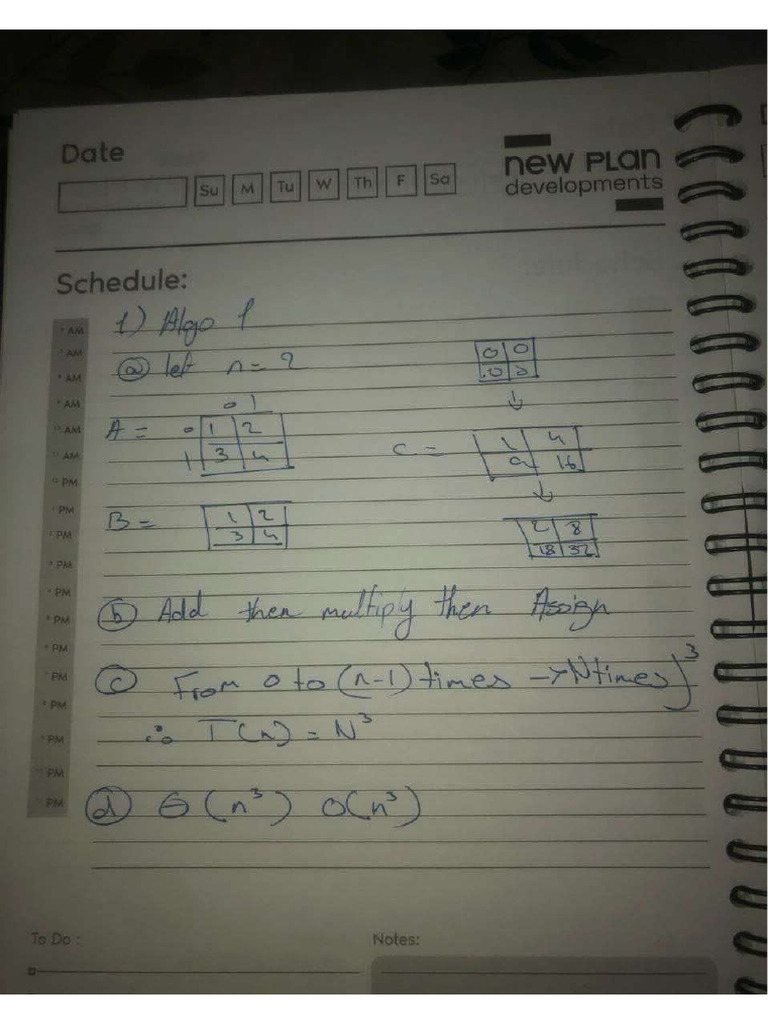 Date
Su M Tu W Th F Sa
new PLan
developments
Schedule:
1) Algo 1
ⓐ let n = 2
0 0
0 0
0 1
A = 0 1 2
1 3 4
C = 1 4
9 16
B = 1 2
3 4
2 8
18 32
ⓑ Add then multiply then Assign
ⓒ From 0 to (n-1) times → N times)³
∴ T(n) = N³
ⓓ Θ(n³) O(n³)
AM
AM
AM
AM
AM
AM
PM
PM
PM
PM
PM
PM
PM
PM
PM
PM
PM
PM
To Do :
Notes: